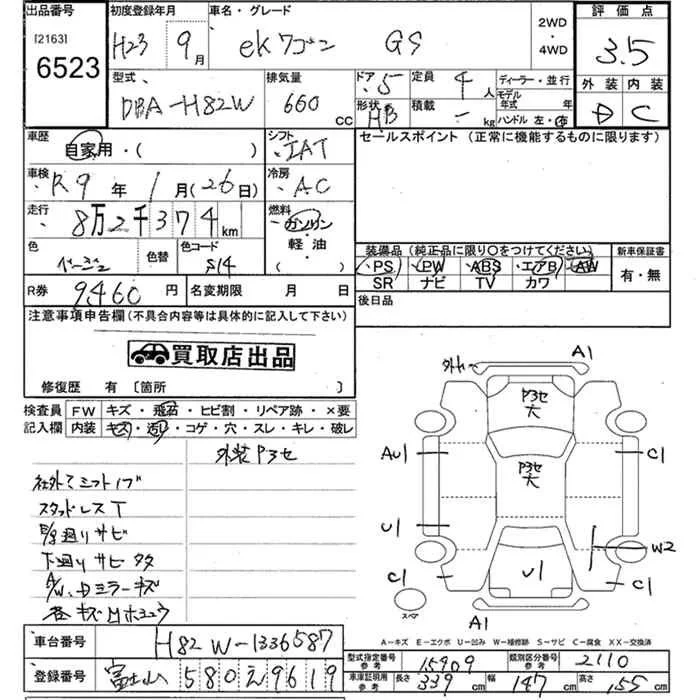 出品番号 初度登録年月 車名・グレード 2WD 評価点
[2163] H23 9月 ekワゴン GS ・4WD 3.5
6523 型式 排気量 ドア 5 定員 4人 ディーラー・並行 外装 内装
DBA-H82W 660cc 形状 HB 積載 - kg モデル年式 年 D C
ハンドル 左・右
車歴 自家用・( ) シフト IAT セールスポイント(正常に機能するものに限ります)
車検 R9年 1月(26日) 冷房 AC
走行 8万2千374km 燃料 ガソリン・軽油 ( )
色 ベージュ 色替 色コード S14
装備品(純正品に限り○をつけてください) 新車保証書
・PS ・PW ・ABS ・エアB ・AW 有・無
SR ナビ TV カワ
R券 9,460円 名変期限 月 日 後日品
注意事項申告欄(不具合内容等は具体的に記入して下さい)
買取店出品
修復歴 有 〔箇所 〕
検査員 FW キズ・飛石・ヒビ割・リペア跡・×要
記入欄 内装 キズ・汚レ・コゲ・穴・スレ・キレ・破レ
外装Pヨセ
スタッドレスT
下廻りサビ
A/W、Dミラーキズ
外ケ A1
Pヨセ大
Pヨセ大
AU1 C1
U1 W2
C1 U1 C1
スペア A1
A-キズ E-エクボ U-凹み W-補修跡 S-サビ C-腐食 XX-交換済
車台番号 H82W-1336587
登録番号 富士山 580 え 9619
型式指定番号 参考 15909 類別区分番号 参考 2110
車庫証明用 参考 長さ 339cm 幅 147cm 高さ 155cm